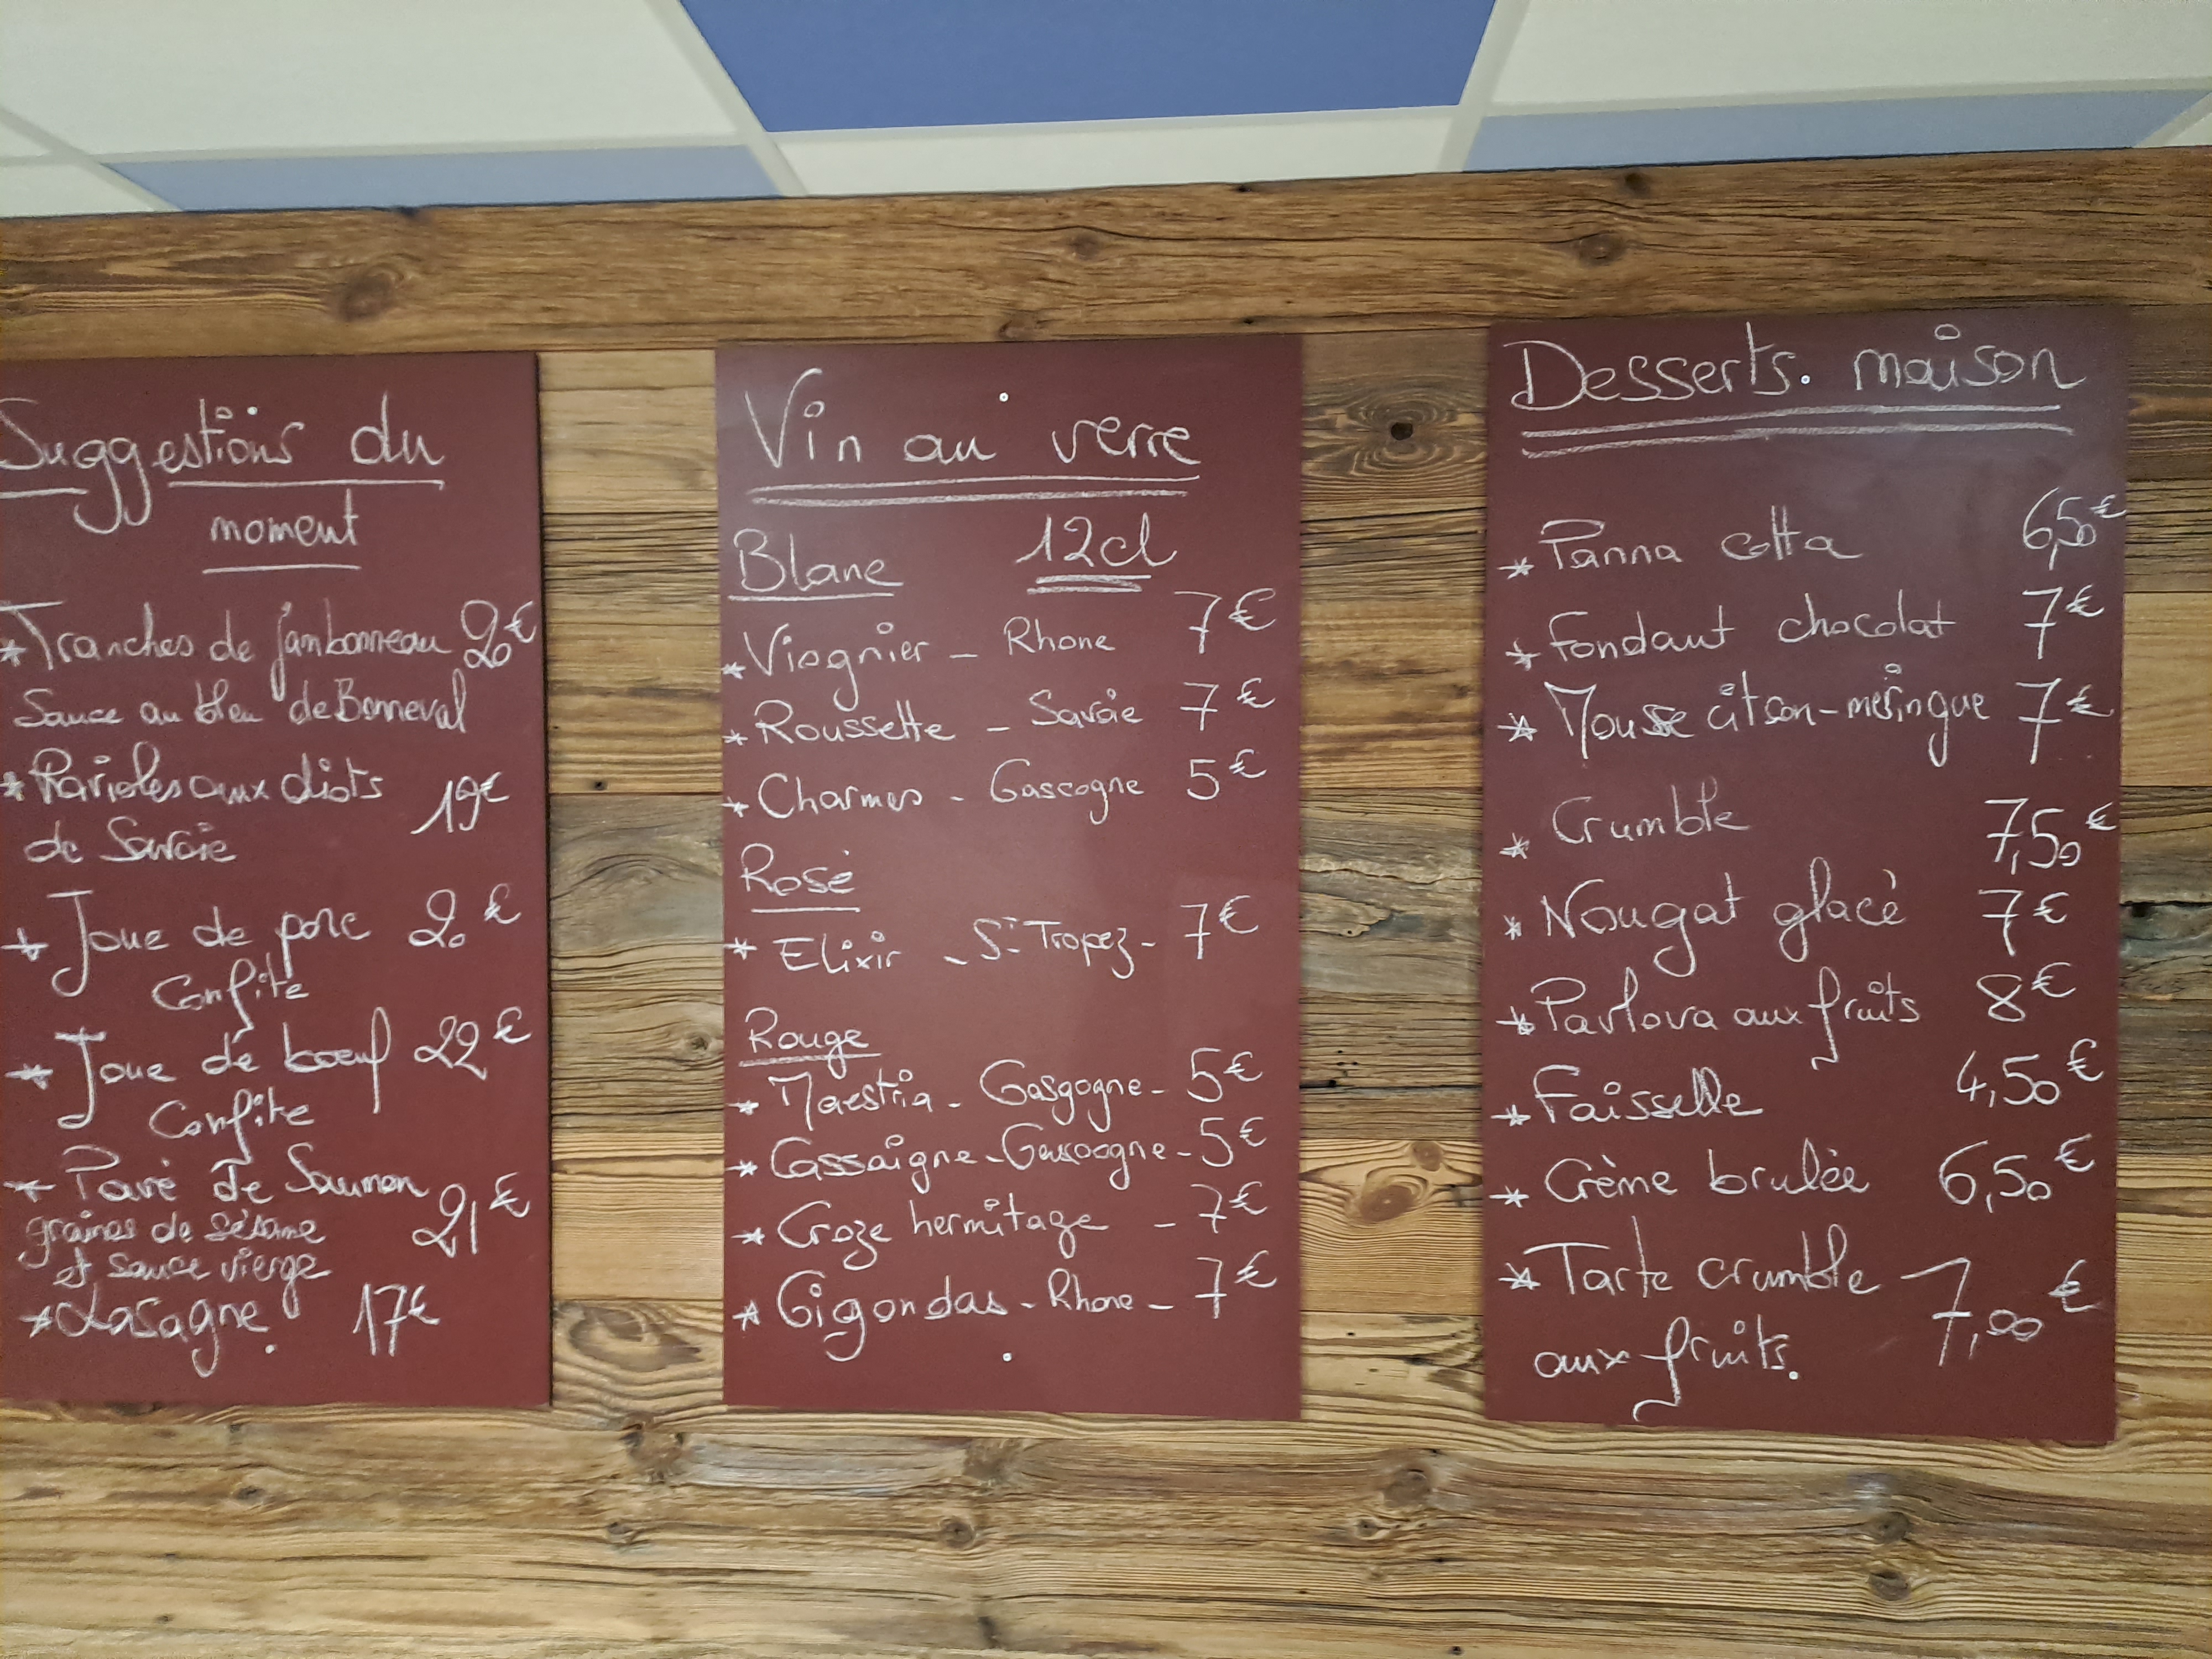 Suggestions du
moment
* Tranches de jambonneau 20€
Sauce au bleu de Bonneval
* Ravioles aux diots
19€
de Savoie
* Joue de porc 20€
Confite
* Joue de boeuf 22€
Confite
* Pavé de Saumon
graines de sésame 21€
et sauce vierge
* Lasagne 17€
Vin au verre
Blanc 12cl
* Viognier - Rhone 7€
* Roussette - Savoie 7€
* Charmes - Gascogne 5€
Rosé
* Elixir - St Tropez - 7€
Rouge
* Maestria - Gasgogne - 5€
* Cassaigne - Gascogne - 5€
* Croze hermitage - 7€
* Gigondas - Rhone - 7€
Desserts maison
* Panna cotta 6,50€
* Fondant chocolat 7€
* Mousse citron-meringue 7€
* Crumble 7,50€
* Nougat glacé 7€
* Pavlova aux fruits 8€
* Faisselle 4,50€
* Crème brulée 6,50€
* Tarte crumble 7,00€
aux fruits.